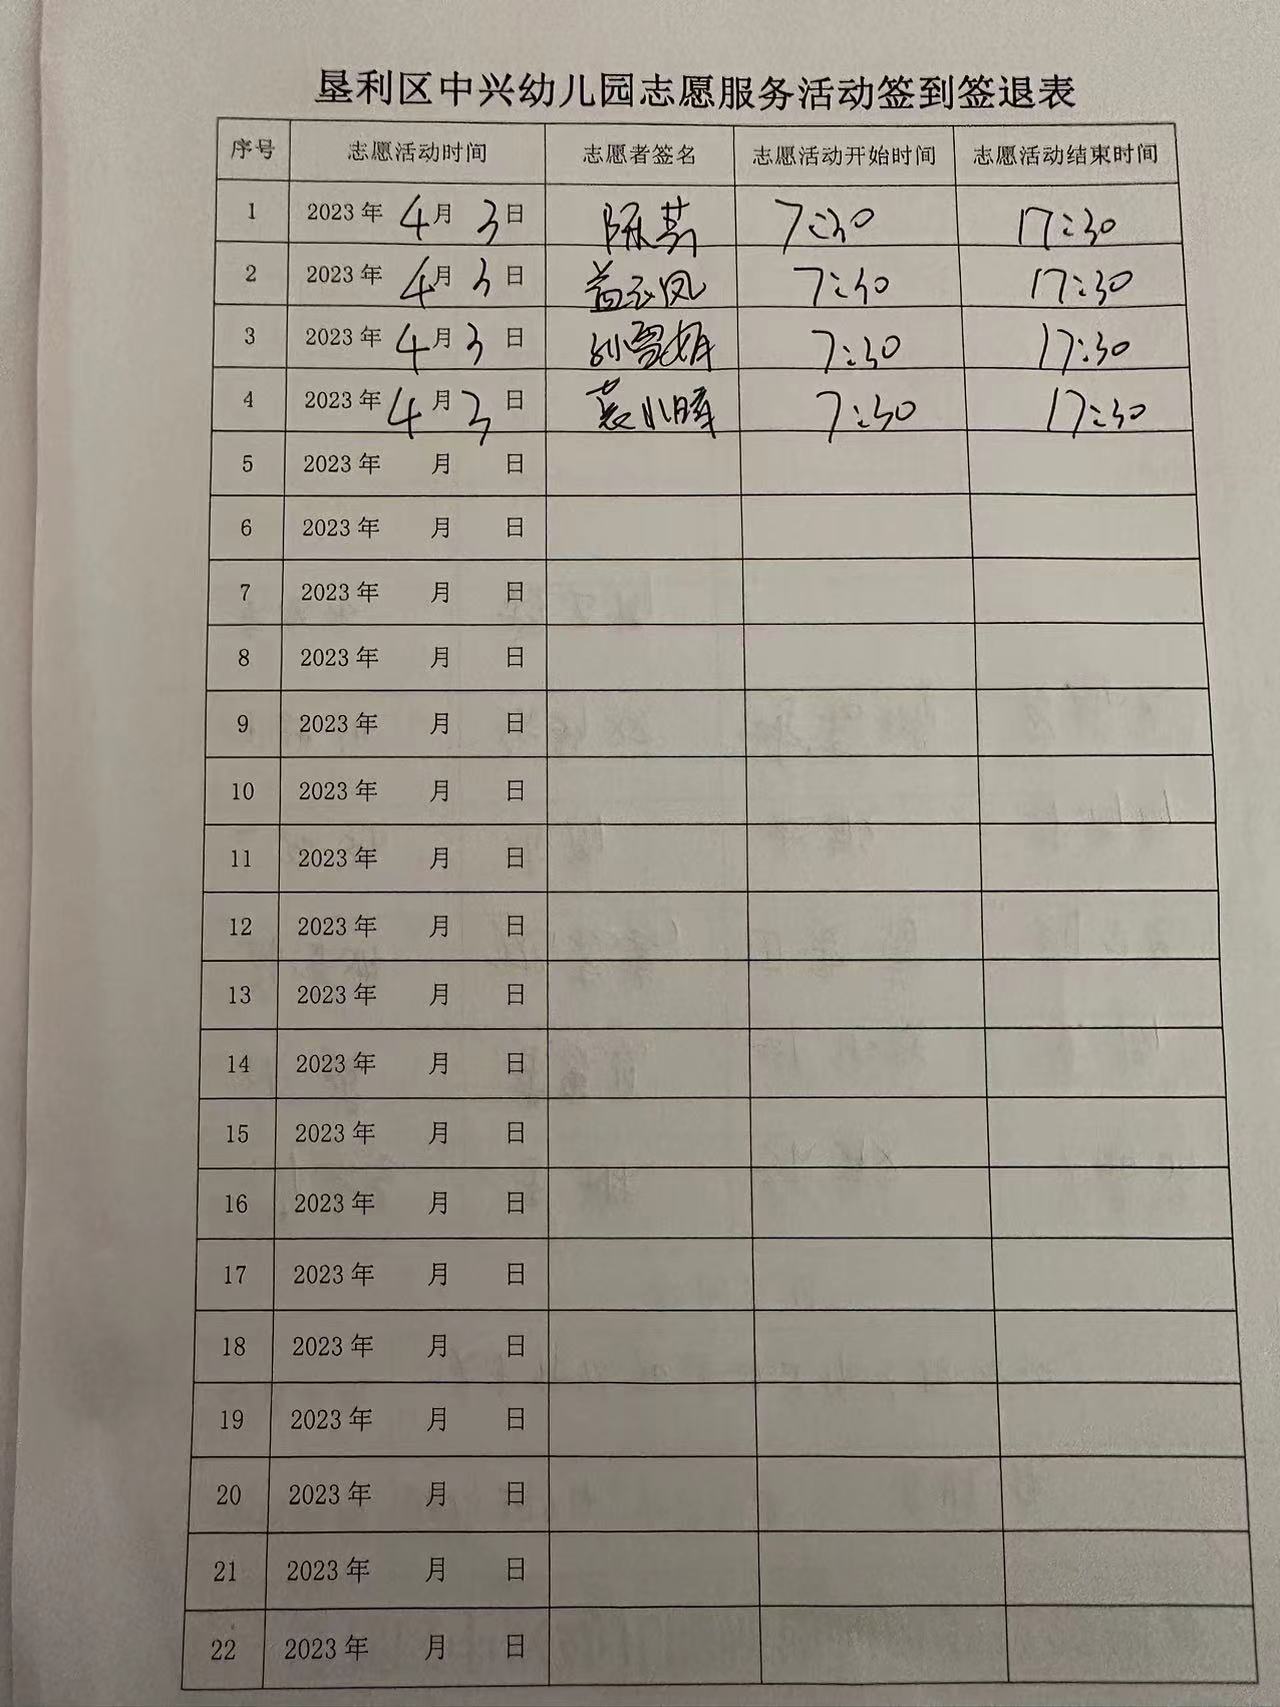 垦利区中兴幼儿园志愿服务活动签到签退表
序号 志愿活动时间 志愿者签名 志愿活动开始时间 志愿活动结束时间
1 2023年 4月 3日 陈芳 7:30 17:30
2 2023年 4月 3日 7:30 17:30
3 2023年 4月 3日 孙雪娟 7:30 17:30
4 2023年 4月 3日 7:30 17:30
5 2023年 月 日
6 2023年 月 日
7 2023年 月 日
8 2023年 月 日
9 2023年 月 日
10 2023年 月 日
11 2023年 月 日
12 2023年 月 日
13 2023年 月 日
14 2023年 月 日
15 2023年 月 日
16 2023年 月 日
17 2023年 月 日
18 2023年 月 日
19 2023年 月 日
20 2023年 月 日
21 2023年 月 日
22 2023年 月 日